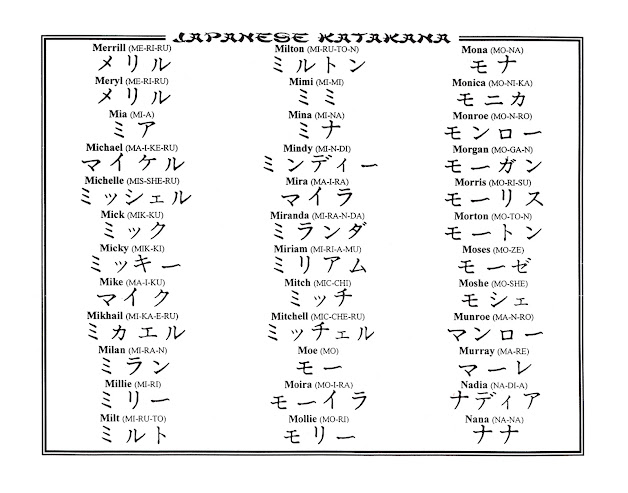 JAPANESE KATAKANA
Merrill (ME-RI-RU)
メリル
Meryl (ME-RI-RU)
メリル
Mia (MI-A)
ミア
Michael (MA-I-KE-RU)
マイケル
Michelle (MIS-SHE-RU)
ミッシェル
Mick (MIK-KU)
ミック
Micky (MIK-KI)
ミッキー
Mike (MA-I-KU)
マイク
Mikhail (MI-KA-E-RU)
ミカエル
Milan (MI-RA-N)
ミラン
Millie (MI-RI)
ミリー
Milt (MI-RU-TO)
ミルト
Milton (MI-RU-TO-N)
ミルトン
Mimi (MI-MI)
ミミ
Mina (MI-NA)
ミナ
Mindy (MI-N-DI)
ミンディー
Mira (MA-I-RA)
マイラ
Miranda (MI-RA-N-DA)
ミランダ
Miriam (MI-RI-A-MU)
ミリアム
Mitch (MIC-CHI)
ミッチ
Mitchell (MIC-CHE-RU)
ミッチェル
Moe (MO)
モー
Moira (MO-I-RA)
モーイラ
Mollie (MO-RI)
モリー
Mona (MO-NA)
モナ
Monica (MO-NI-KA)
モニカ
Monroe (MO-N-RO)
モンロー
Morgan (MO-GA-N)
モーガン
Morris (MO-RI-SU)
モーリス
Morton (MO-TO-N)
モートン
Moses (MO-ZE)
モーゼ
Moshe (MO-SHE)
モシェ
Munroe (MA-N-RO)
マンロー
Murray (MA-RE)
マーレ
Nadia (NA-DI-A)
ナディア
Nana (NA-NA)
ナナ